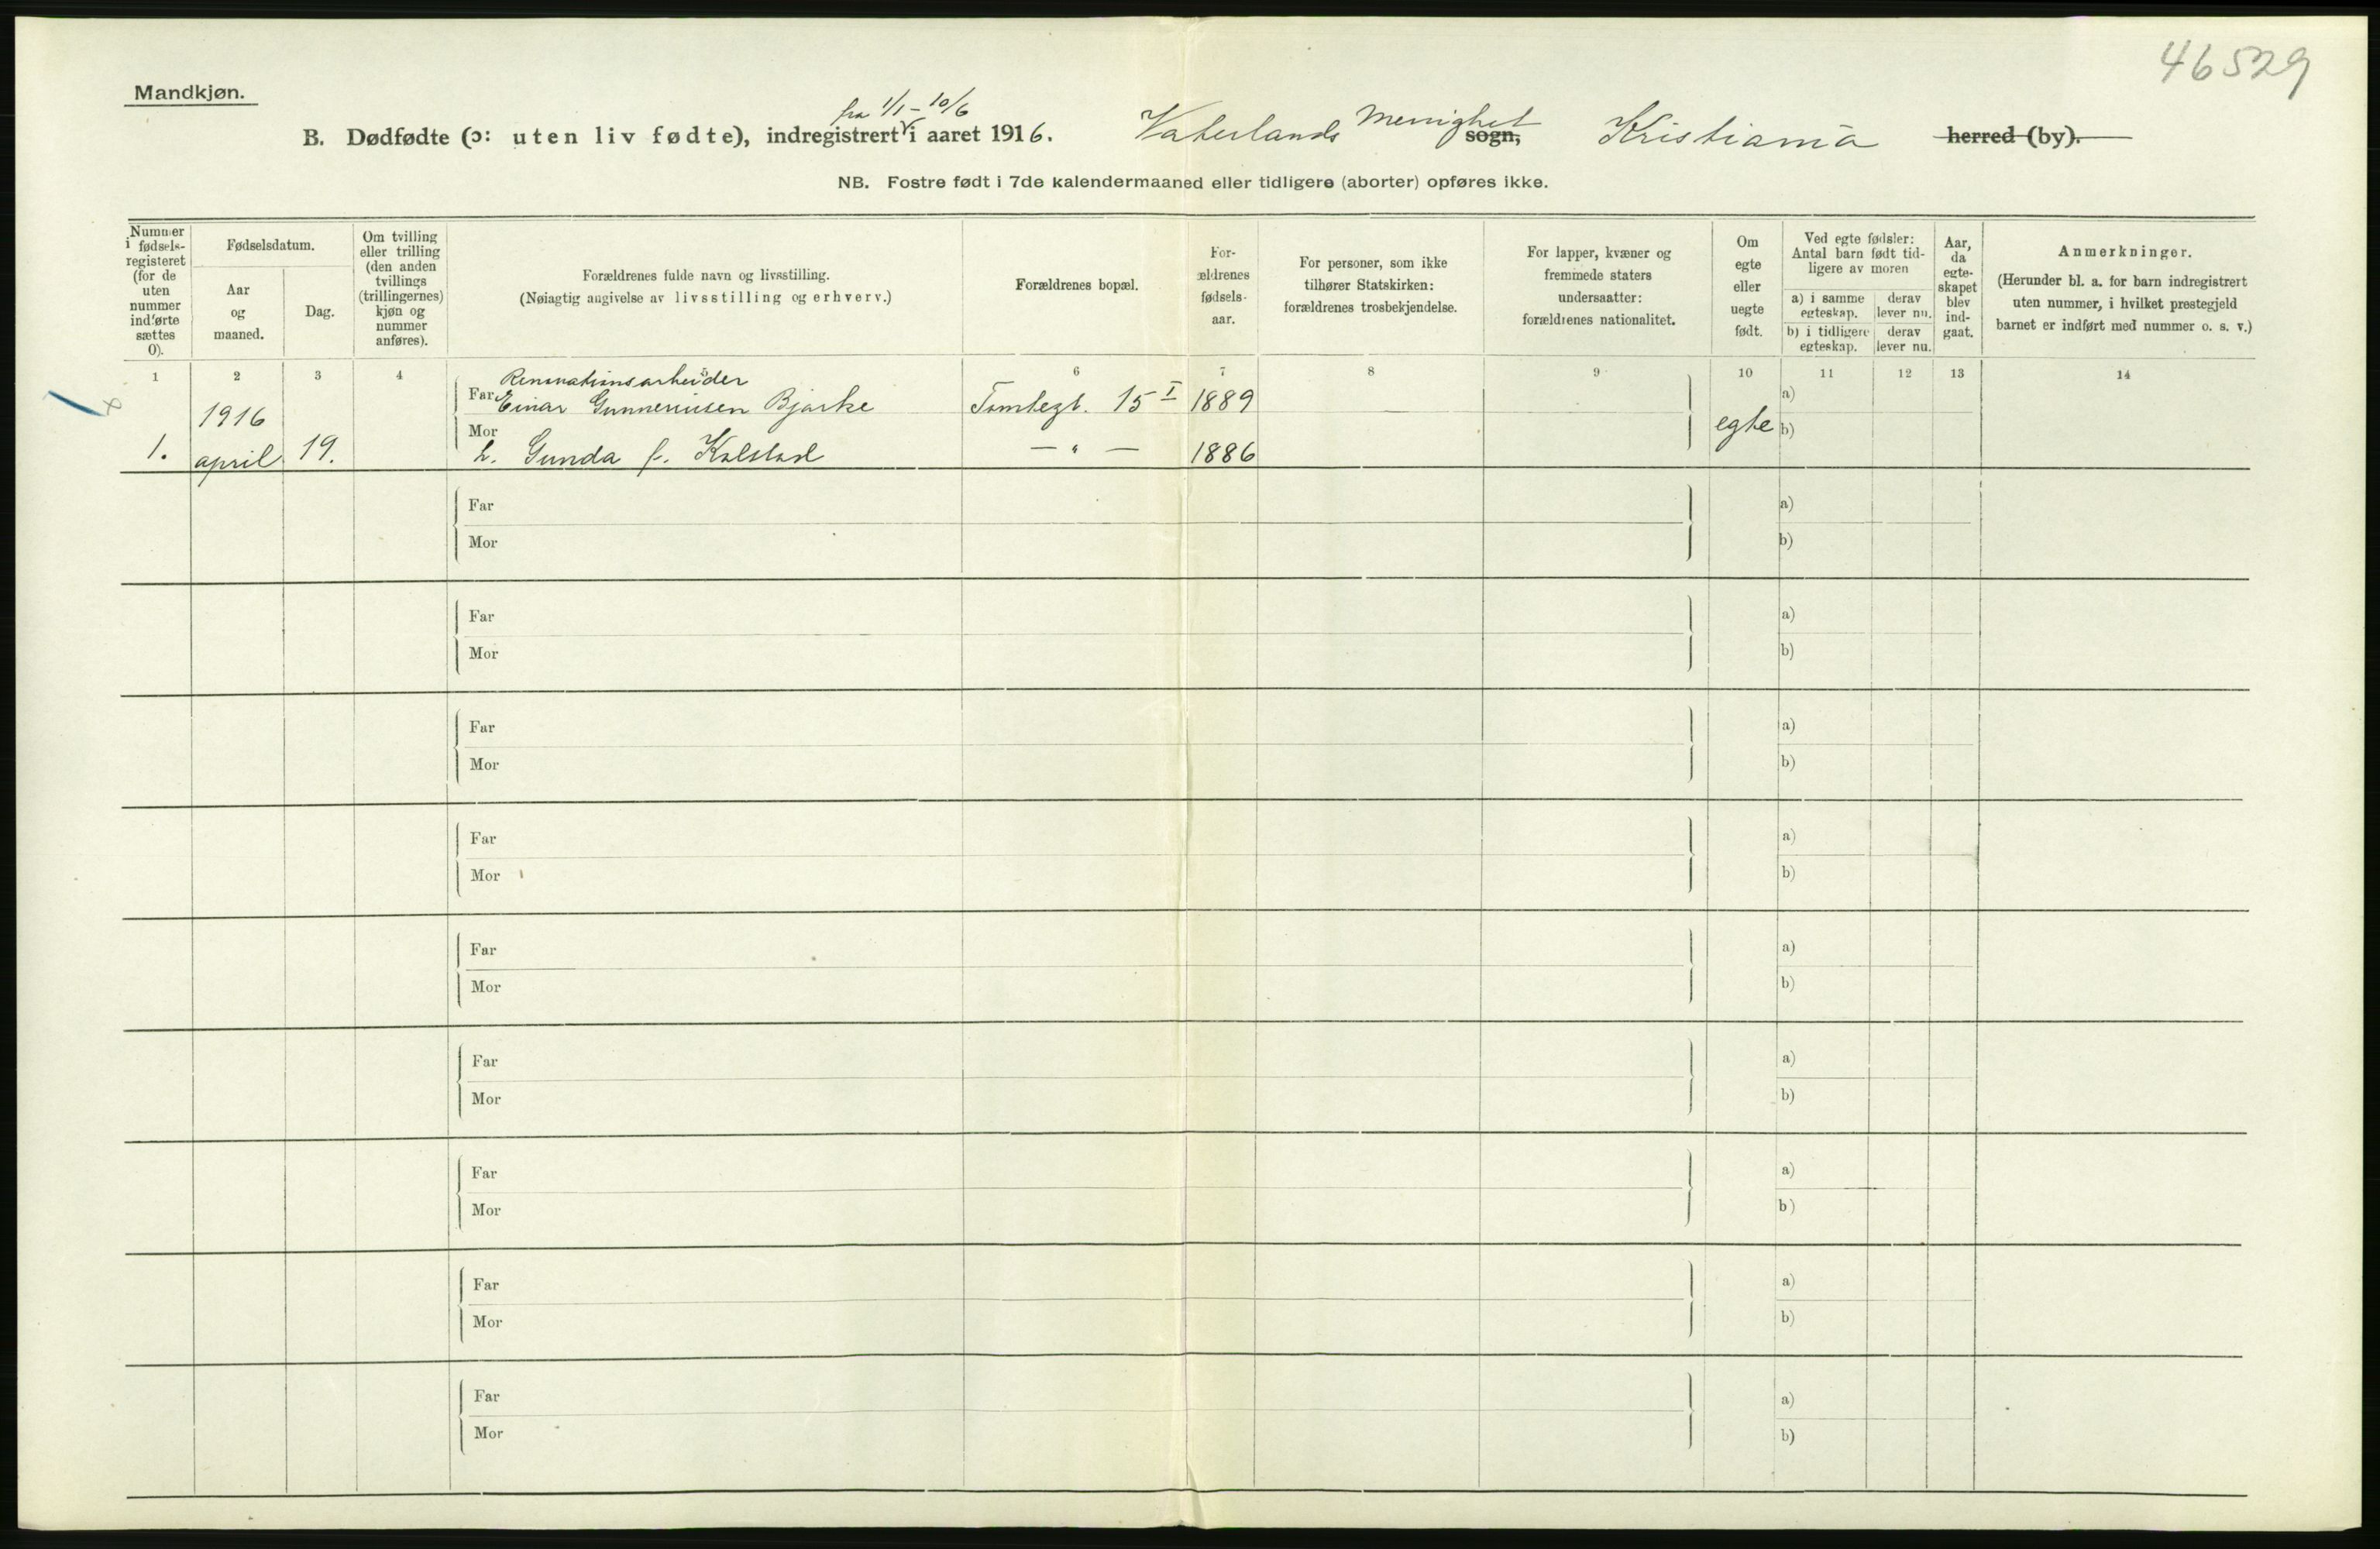 46529
Mandkjøn.
fra 1/1 - 10/6
B. Dødfødte (ɔ: uten liv fødte), indregistrert i aaret 1916. Vaterlands Menighet sogn, Kristiania herred (by).
NB. Fostre født i 7de kalendermaaned eller tidligere (aborter) opføres ikke.
Nummer i fødsels-registeret (for de uten nummer indførte sættes 0).
Fødselsdatum.
Aar og maaned.
Dag.
Om tvilling eller trilling (den anden tvillings (trillingernes) kjøn og nummer anføres).
Forældrenes fulde navn og livsstilling.
(Nøiagtig angivelse av livsstilling og erhverv.)
Forældrenes bopæl.
For-ældrenes fødsels-aar.
For personer, som ikke tilhører Statskirken: forældrenes trosbekjendelse.
For lapper, kvæner og fremmede staters undersaatter: forældrenes nationalitet.
Om egte eller uegte født.
Ved egte fødsler: Antal barn født tid-ligere av moren
a) i samme egteskap.
derav lever nu.
b) i tidligere egteskap.
derav lever nu.
Aar, da egte-skapet blev ind-gaat.
Anmerkninger.
(Herunder bl. a. for barn indregistrert uten nummer, i hvilket prestegjeld barnet er indført med nummer o. s. v.)
1 2 3 4 5 6 7 8 9 10 11 12 13 14
Renovationsarbeider
1916 Far Einar Gunneriusen Bjarke Tomtegt. 15 I 1889 a)
1. april 19. Mor h. Gunda f. Kolstad — " — 1886 egte b)
Far a)
Mor b)
Far a)
Mor b)
Far a)
Mor b)
Far a)
Mor b)
Far a)
Mor b)
Far a)
Mor b)
Far a)
Mor b)
Far a)
Mor b)
Far a)
Mor b)